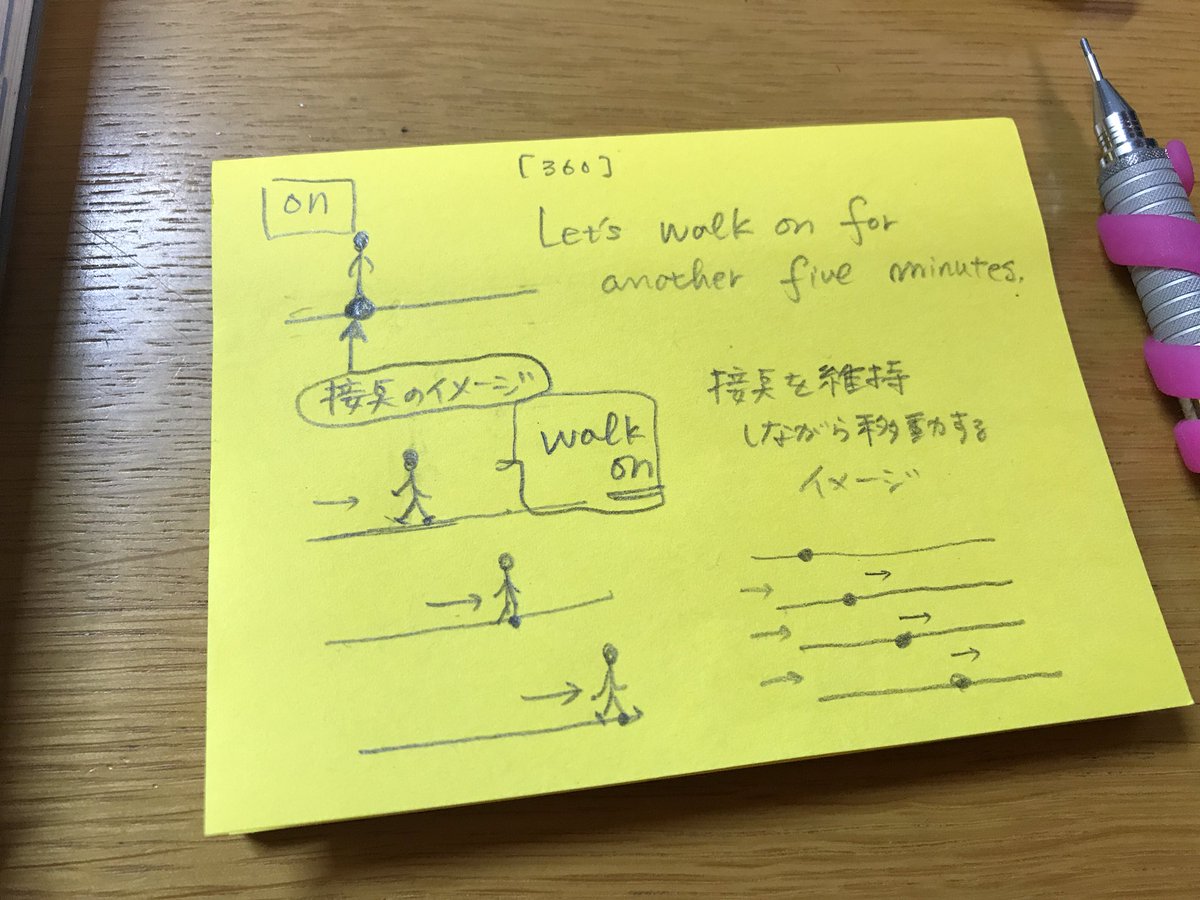 [360]
on
Let's walk on for
another five minutes.
接点のイメージ
walk
on
接点を維持
しながら移動する
イメージ